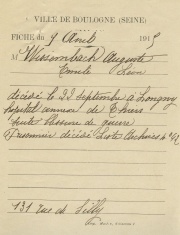 VILLE DE BOULOGNE (SEINE)
FICHE du 9 Août 191
M Wissembach Auguste
Emile Léon
décédé le 22 septembre à Longwy
hôpital annexe de Thiers
suite blessure de guerre
Prisonnier décédé Liste Archives
131 rue de Silly